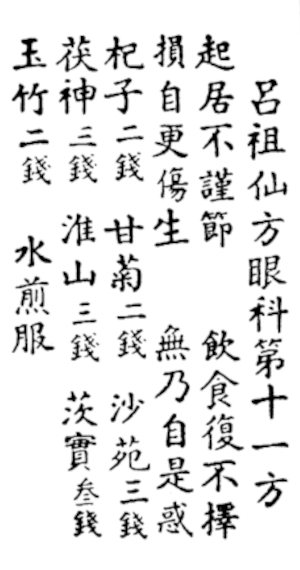 呂祖仙方眼科第十一方
起居不謹節 飲食復不擇
損自更傷生 無乃自是惑
杞子二錢 甘菊二錢 沙苑三錢
茯神三錢 淮山三錢 茨實叁錢
玉竹二錢 水煎服